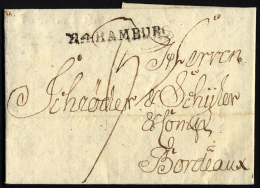 R4 HAMBURG
Herren
Schröder & Schÿler
& Comp
Bordeaux